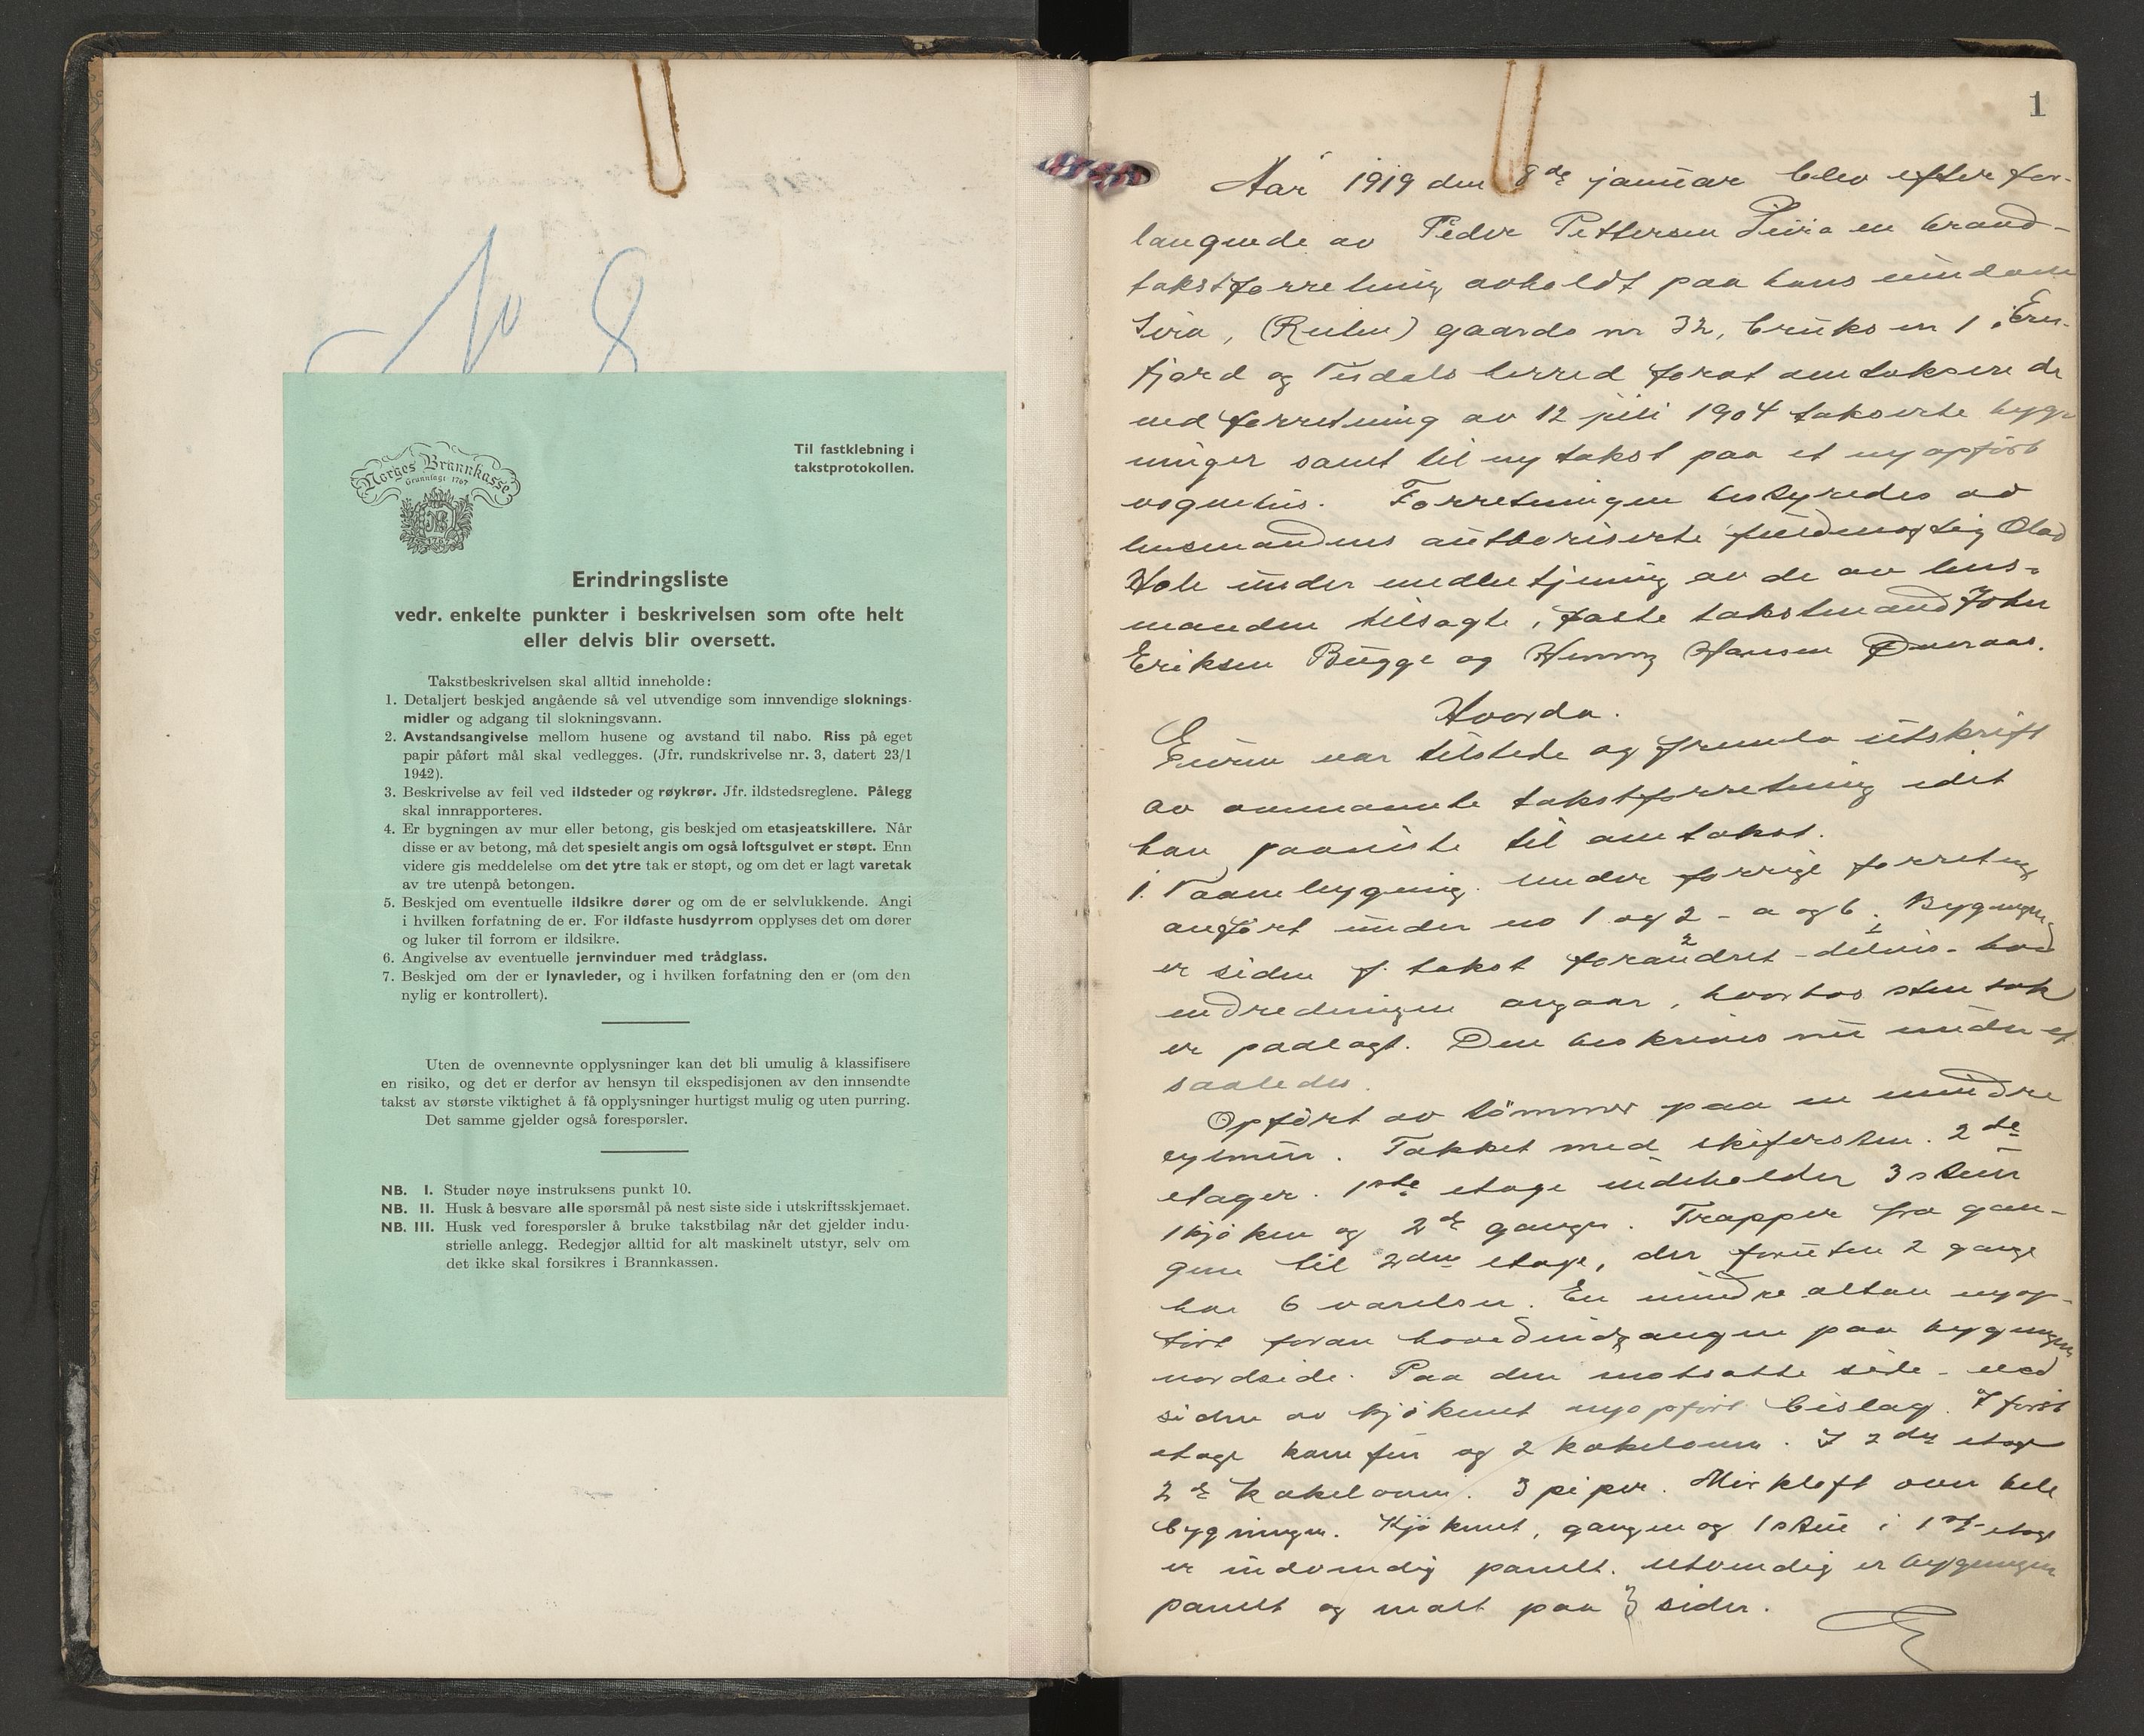 No 8
Norges Brannkasse
Grunnlagt 1767
Til fastklebning i
takstprotokollen.
Erindringsliste
vedr. enkelte punkter i beskrivelsen som ofte helt
eller delvis blir oversett.
Takstbeskrivelsen skal alltid inneholde:
1. Detaljert beskjed angående så vel utvendige som innvendige sloknings-
midler og adgang til slokningsvann.
2. Avstandsangivelse mellom husene og avstand til nabo. Riss på eget
papir påført mål skal vedlegges. (Jfr. rundskrivelse nr. 3, datert 23/1
1942).
3. Beskrivelse av feil ved ildsteder og røykrør. Jfr. ildstedsreglene. Pålegg
skal innrapporteres.
4. Er bygningen av mur eller betong, gis beskjed om etasjeatskillere. Når
disse er av betong, må det spesielt angis om også loftsgulvet er støpt. Enn
videre gis meddelelse om det ytre tak er støpt, og om det er lagt varetak
av tre utenpå betongen.
5. Beskjed om eventuelle ildsikre dører og om de er selvlukkende. Angi
i hvilken forfatning de er. For ildfaste husdyrrom opplyses det om dører
og luker til forrom er ildsikre.
6. Angivelse av eventuelle jernvinduer med trådglass.
7. Beskjed om der er lynavleder, og i hvilken forfatning den er (om den
nylig er kontrollert).
Uten de ovennevnte opplysninger kan det bli umulig å klassifisere
en risiko, og det er derfor av hensyn til ekspedisjonen av den innsendte
takst av største viktighet å få opplysninger hurtigst mulig og uten purring.
Det samme gjelder også forespørsler.
NB. I. Studer nøye instruksens punkt 10.
NB. II. Husk å besvare alle spørsmål på nest siste side i utskriftsskjemaet.
NB. III. Husk ved forespørsler å bruke takstbilag når det gjelder indu-
strielle anlegg. Redegjør alltid for alt maskinelt utstyr, selv om
det ikke skal forsikres i Brannkassen.
1
Aar 1919 den 8de januar blev efter for-
langende av Peder Pettersen Sira en brand-
takstforretning avholdt paa hans eiendom
Sira, (Reiten) gaards nr 32, bruks nr 1, Eres-
fjord og Vistdals herred forat omtaksere de
ved forretning av 12 juli 1904 takserte byg-
ninger samt til ny takst paa et nyopført
vognhus. Forretningen bestyredes av
lensmandens autoriserte fuldmægtig Olav
Hole under medbetjening av de av lens-
manden tilsagte, faste takstmænd John
Eriksen Bugge og Henning Hansen
Hvorda.
Eieren var tilstede og fremla utskrift
av ommeldte takstforretning idet
han paaviste til omtakst.
1. Vaanebygning. under forrige forretning
anført under no 1 og 2 - a og b. Bygningen
er siden f. takst forandret - delvis - hvad
indredningen angaar, hvorhos stentak
er paalagt. Den beskrives nu under et
saaledes.
Opført av tømmer paa en mindre
sylmur. Takket med skifersten. 2de
etager. 1ste etage indeholder 3 stuer
1 kjøken og 2de ganger. Trapper fra gan-
gene til 2den etage, der foruten 2 gange
har 6 værelser. En mindre altan nyop-
ført foran hovedindgangen paa bygningens
nordside. Paa den motsatte side - ved
siden av kjøkenet nyopført bislag. I først
etage komfur og 2 kakelovne. I 2den etage
2de kakelovne. 3 piper. Mørkloft over hele
bygningen. Kjøkenet, gangen og 1 stue i 1ste etage
er indvendig panelt. Utvendig er bygningen
panelt og malt paa 3 sider.